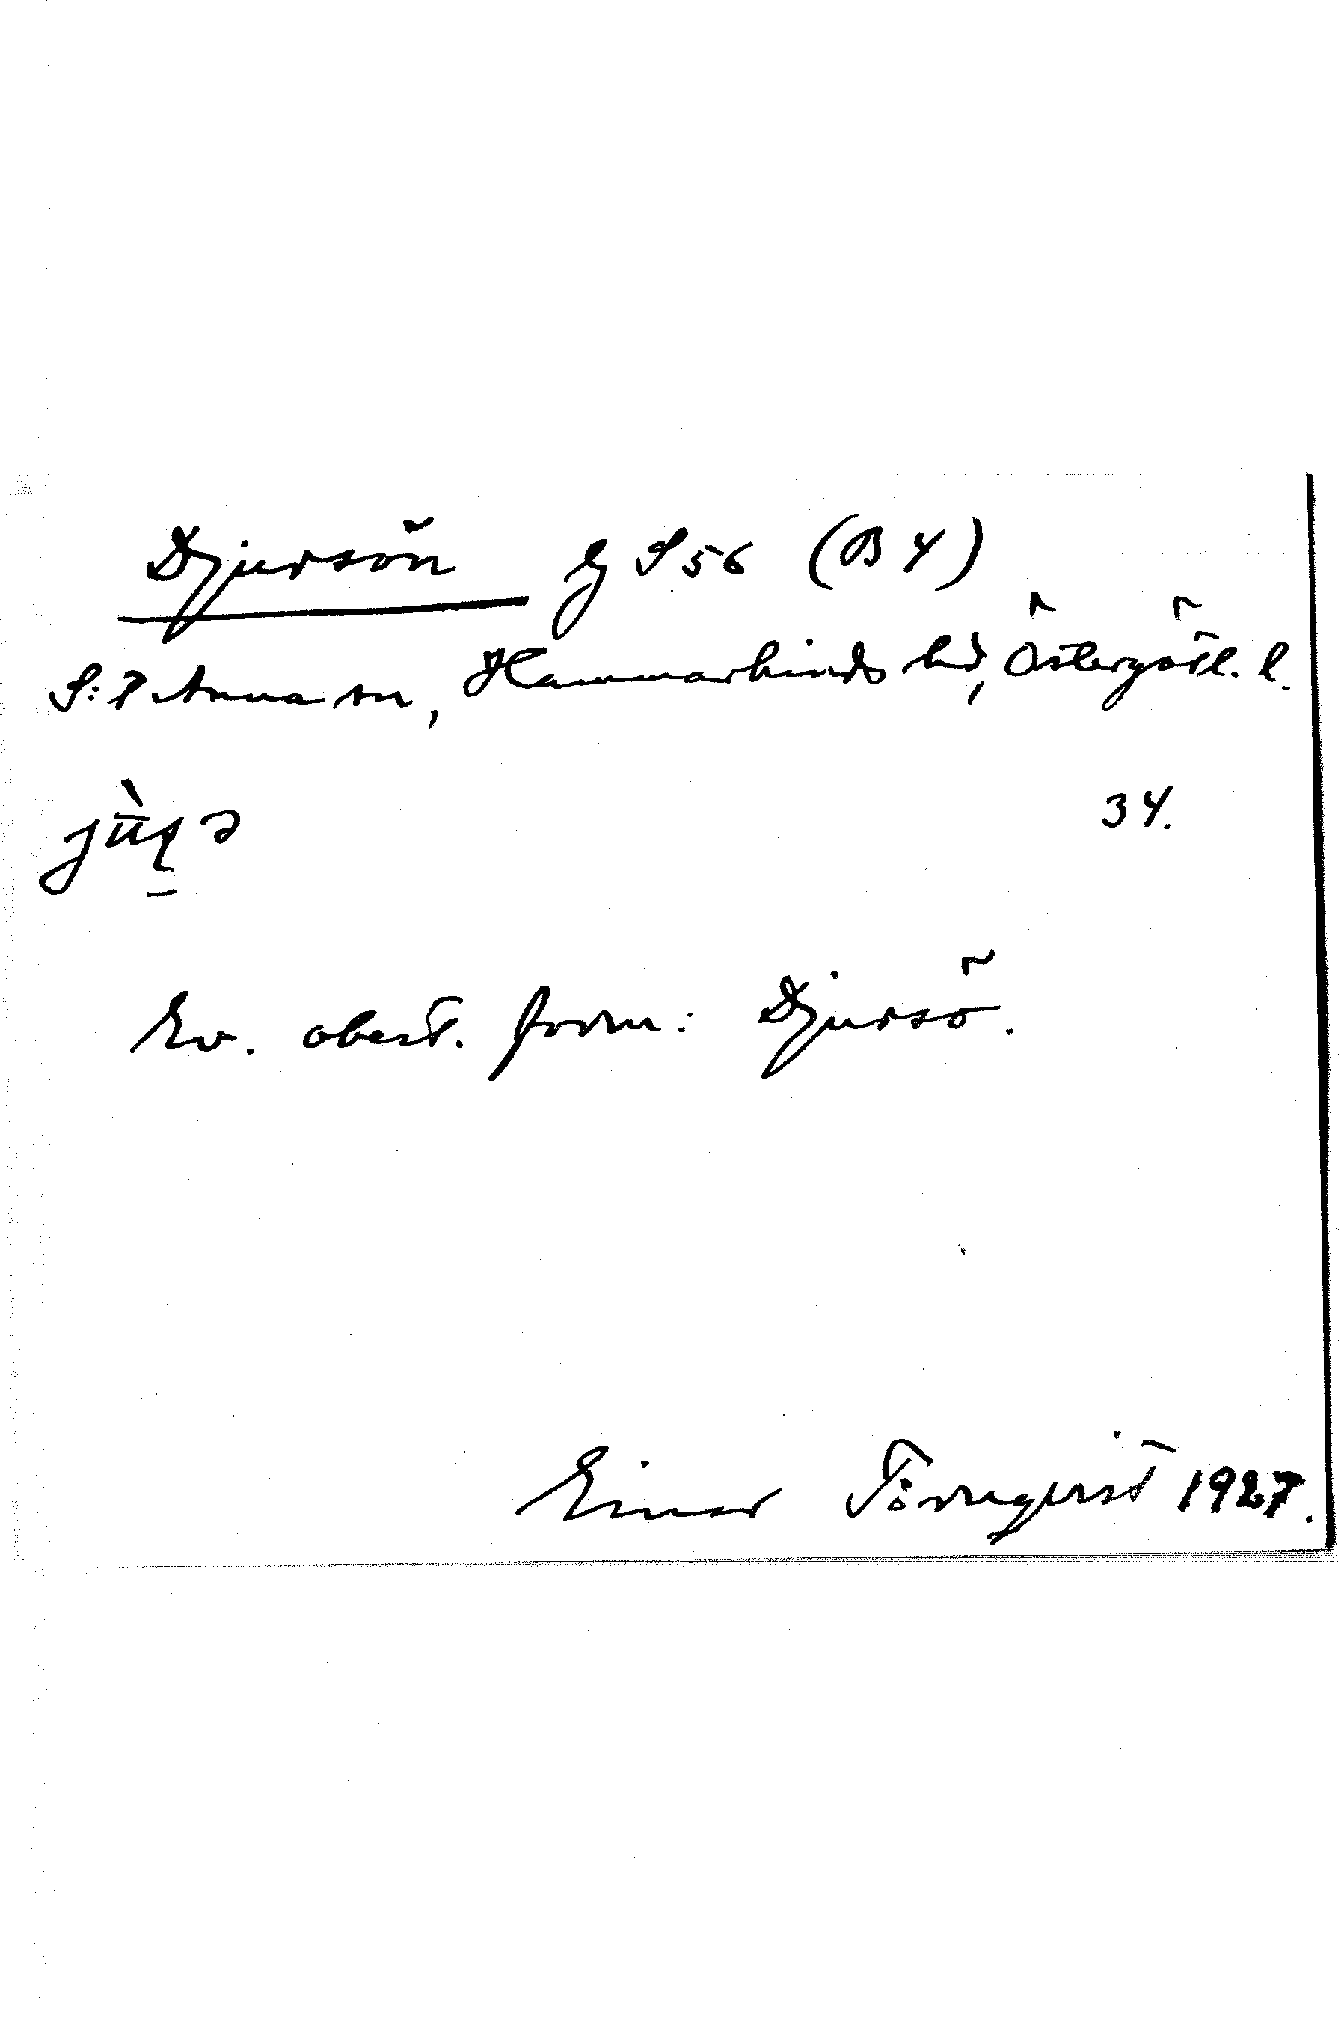 Djursön by S 56 (B 4)
S:t Anna sn, Hammarkinds hd, Östergötl. l.
34.
Ev. obest. form: Djursö.
Einar Törnqvist 1927.